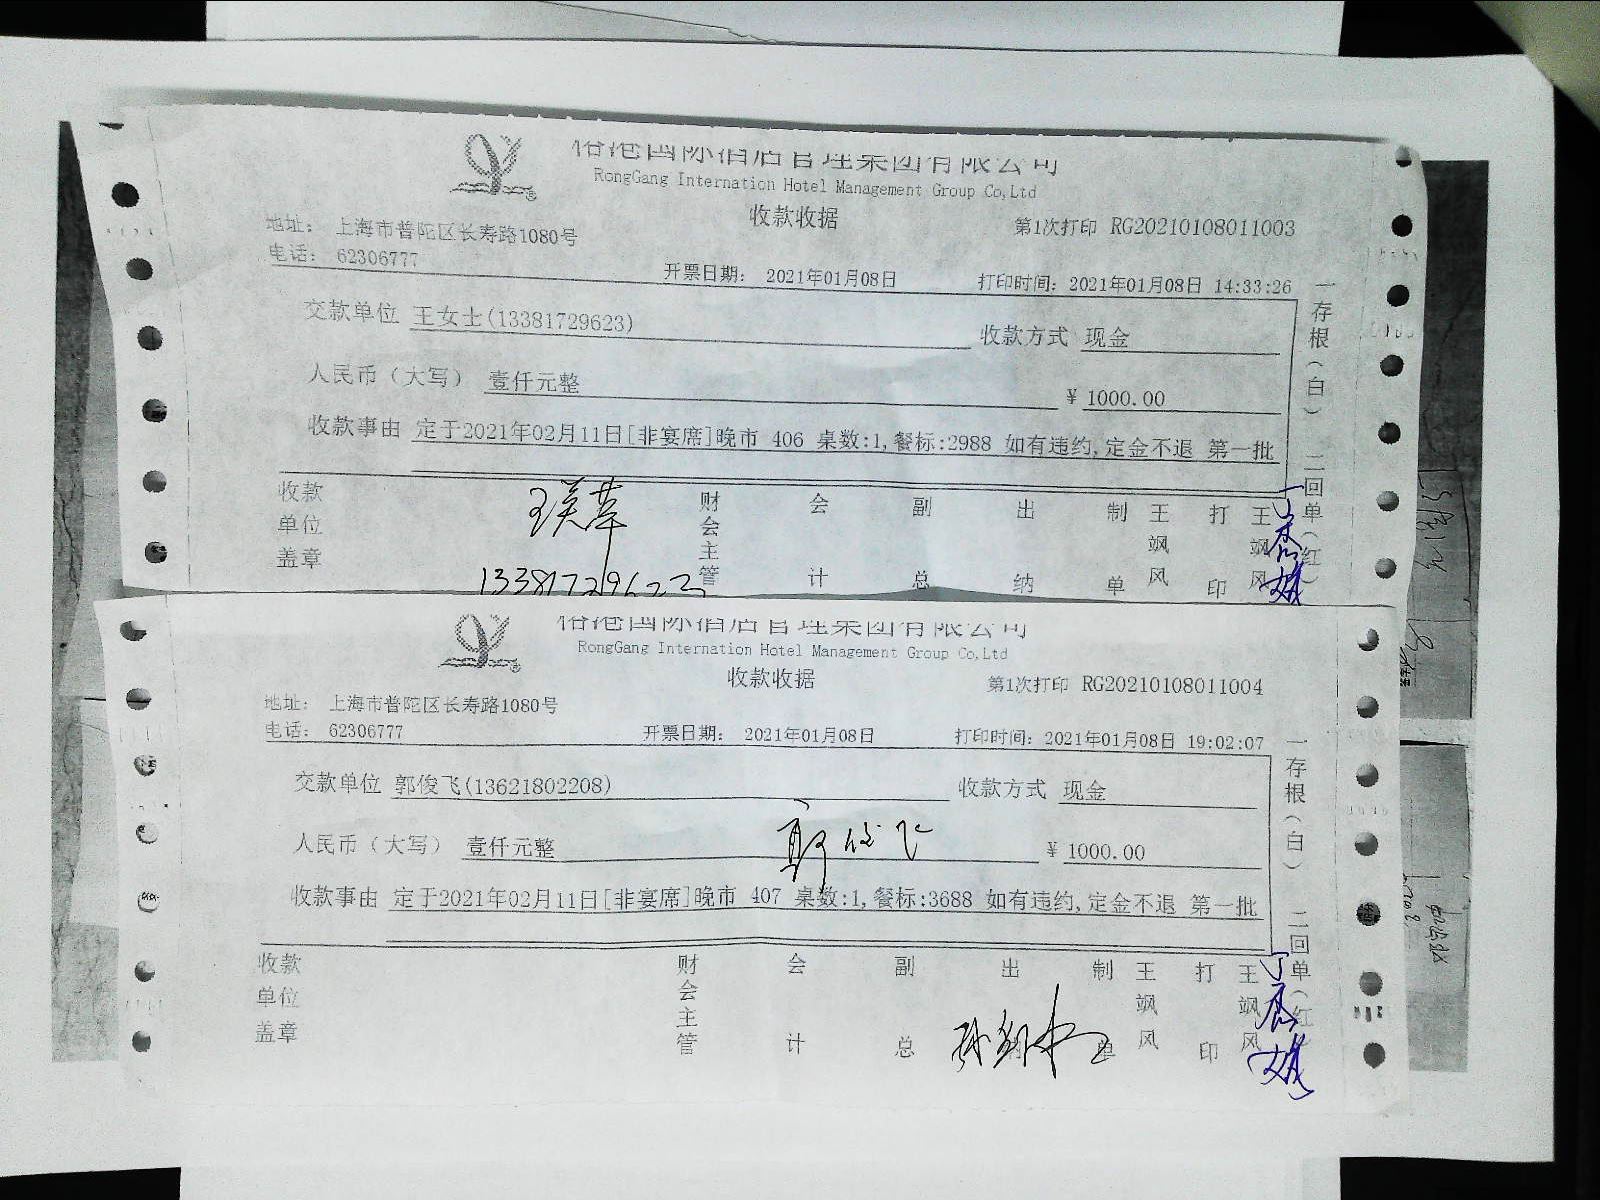 国际酒店管理集团有限公司
RongGang Internation Hotel Management Group Co,Ltd
收款收据
地址： 上海市普陀区长寿路1080号
第1次打印 RG20210108011003
电话： 62306777
开票日期： 2021年01月08日
打印时间：2021年01月08日 14:33:26
交款单位 王女士(13381729623)
收款方式 现金
人民币（大写） 壹仟元整
￥1000.00
收款事由 定于2021年02月11日[非宴席]晚市 406 桌数:1,餐标:2988 如有违约,定金不退 第一批
一存根（白） 二回单（红）
收款单位盖章
财会主管
会计
副总
出纳
制单
王飒风
打印
王飒风
国际酒店管理集团有限公司
RongGang Internation Hotel Management Group Co,Ltd
收款收据
地址： 上海市普陀区长寿路1080号
第1次打印 RG20210108011004
电话： 62306777
开票日期： 2021年01月08日
打印时间：2021年01月08日 19:02:07
交款单位 郭俊飞(13621802208)
收款方式 现金
郭俊飞
人民币（大写） 壹仟元整
￥1000.00
收款事由 定于2021年02月11日[非宴席]晚市 407 桌数:1,餐标:3688 如有违约,定金不退 第一批
一存根（白） 二回单（红）
收款单位盖章
财会主管
会计
副总
出纳
制单
王飒风
打印
王飒风